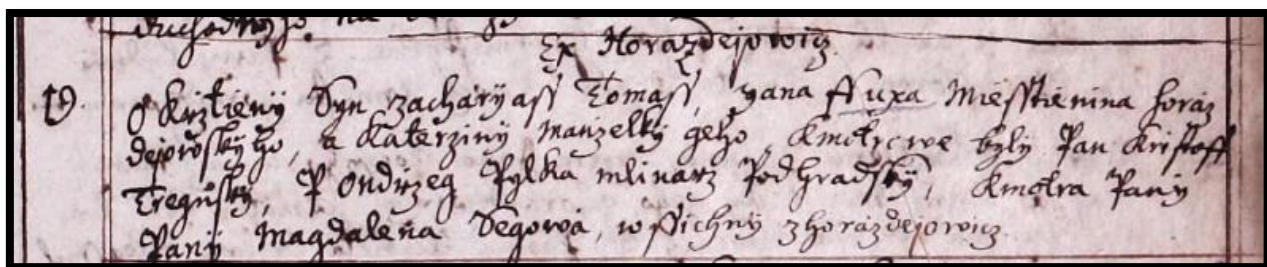 duchodnyho. na
Ex Horazdejowicz
19. Okrztieny Syn Zacharyass Tomass, yana ffuxa Miesstienina horaz
dejowskyho, a Katerziny Manzelky geho, Kmotrowe byly Pan Kristoff
Tregusky, P Ondrzeg Pylka mlinarz Podhradsky, Kmotra Pany
Pany Magdalena Segowa, wssichny z horazdejowicz.